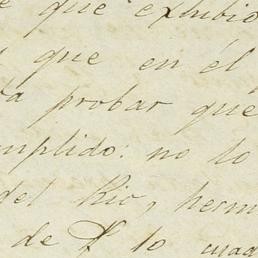 e que exhibio
que en él
a probar que
mplido: no lo
del Rio, herm
de f lo usad